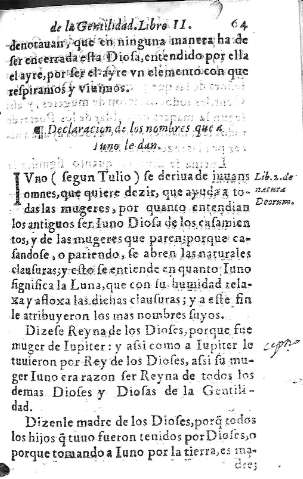 de la Gentilidad. Libro II. 64
denotauan, que en ninguna manera ha de
ser encerrada esta Diosa, entendido por ella
el ayre, por ser el ayre vn elemento con que
respiramos y viuimos.
¶ Declaracion de los nombres que a
Iuno le dan.
IVno (segun Tulio) se deriua de iuuans
omnes, que quiere dezir, que ayuda a to-
das las mugeres, por quanto entendian
los antiguos ser Iuno Diosa de los casamien
tos, y de las mugeres que paren: porque ca-
sandose, o pariendo, se abren las naturales
clausuras; y esto se entiende en quanto Iuno
significa la Luna, que con su humidad rela-
xa y afloxa las dichas clausuras; y a este fin
le atribuyeron los mas nombres suyos.
Lib. 2. de
natura
Deorum.
Dizese Reyna de los Dioses, porque fue
muger de Iupiter: y assi como a Iupiter le
tuuieron por Rey de los Dioses, assi su mu-
ger Iuno era razon ser Reyna de todos los
demas Dioses y Diosas de la Gentili-
dad.
Dizenle madre de los Dioses, porq̃ todos
los hijos q̃ tuuo fueron tenidos por Dioses, o
porque tomando a Iuno por la tierra, es ma-
dre;